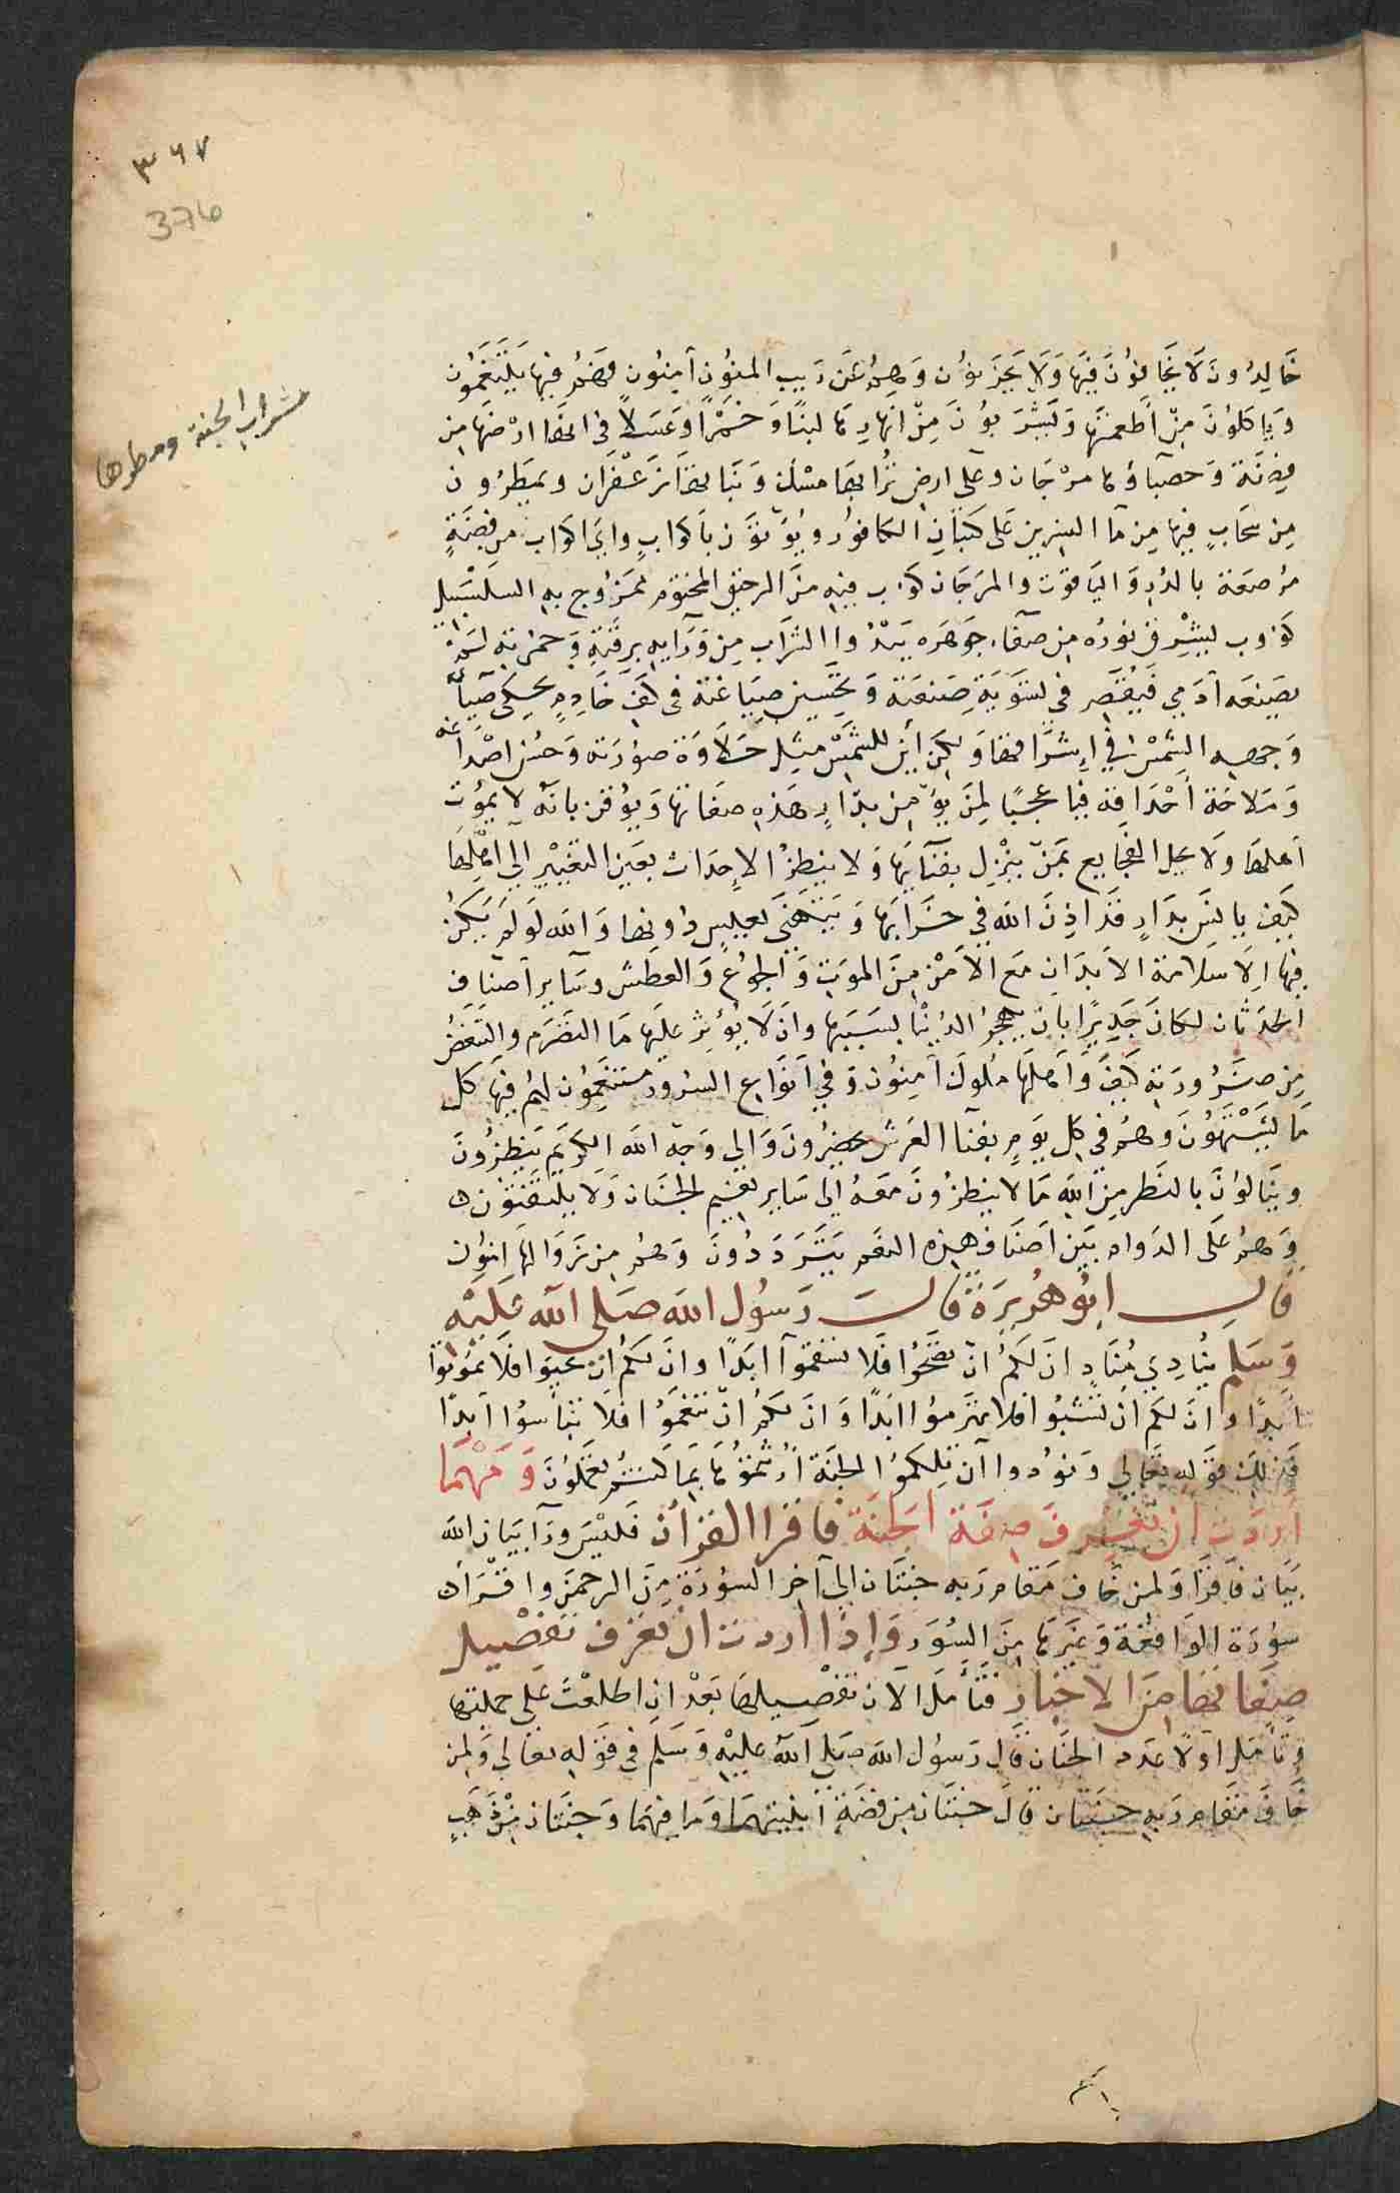 ٣٦٧
376
شراب الجنة ومطرها
خالدون لا يخافون فيها ولا يحزنون وهم عن ريب المنون آمنون فهم فيها يتنعمون
وياكلون من أطعمتها ويشربون من انهارها لبنا وخمرا وعسلا في انهار ارضها من
فضة وحصباؤها مرجان وعلى ارض ترابها مسك ونباتها زعفران ويمطرون
من سحاب فيها من مآ النسرين على كثبان الكافور ويؤتون باكواب واي اكواب من فضة
مرصعة بالدر والياقوت والمرجان كوب فيه من الرحيق المختوم ممزوج به السلسبيل
كوب يشرق نوره من صفاء جوهره يبدوا الشراب من ورآيه برقته وحمرته لم
يصنعه آدمي فيقصر في تسوية صنعته وتحسين صياغته في كف خادم يحكي ضيآء
وجهه الشمس في اشراقها ولكن أين للشمس مثل حلاوة صورته وحسن اصداغه
وملاحة أحداقه فيا عجبا لمن يؤمن بدار هذه صفاتها ويوقن بانه لا يموت
اهلها ولا تحل الفجايع بمن ينزل بفنآيها ولا ينظر الاحداث بعين التغيير الى اهلها
كيف يانس بدار قد اذن الله في خرابها ويتهنى بعيش دونها والله لو لم يكن
فيها الا سلامة الابدان مع الامن من الموت والجوع والعطش وسآير أصناف
الحدثان لكان جديرا بان يهجر الدنيا بسببها وان لا يؤثر عليها ما التصرم والتنغص
من ضرورته كيف واهلها ملوك آمنون وفي أنواع السرور متنعمون لهم فيها كل
ما يشتهون وهم في كل يوم بفنآ العرش يحضرون والى وجه الله الكريم ينظرون
وينالون بالنظر من الله ما لا ينظرون معه الى ساير نعيم الجنان ولا يلتفتون
وهم على الدوام بين اصناف هذه النعم يترددون وهم من زوالها آمنون
قال ابو هريرة قال رسول الله صلى الله عليه
وسلم ينادي مناد ان لكم ان تصحوا فلا تسقموآ ابدا وان لكم ان تحيوا فلا تموتوا
ابدا وان لكم ان تشبوا فلا تهرموا ابدا وان لكم ان تنعموا فلا تباسوا ابدا
فذلك قوله تعالى ونودوا آن تلكموا الجنة أورثتموها بما كنتم تعملون ومهما
أردت ان تعرف صفة الجنة فاقرا القرآن فليس ورآ بيان الله
بيان فاقرا ولمن خاف مقام ربه جنتان الى آخر السورة من الرحمن واقرأ
سورة الواقعة وغيرها من السور وإذا اردت ان تعرف تفصيل
صفاتها من الاخبار فتأمل الآن تفصيلها بعد ان اطلعت على جملتها
وتامل اولا عدد الجنان قال رسول الله صلى الله عليه وسلم في قوله تعالى ولمن
خاف مقام ربه جنتان قال جنتان من فضة آنيتهما وما فيهما وجنتان من ذهب